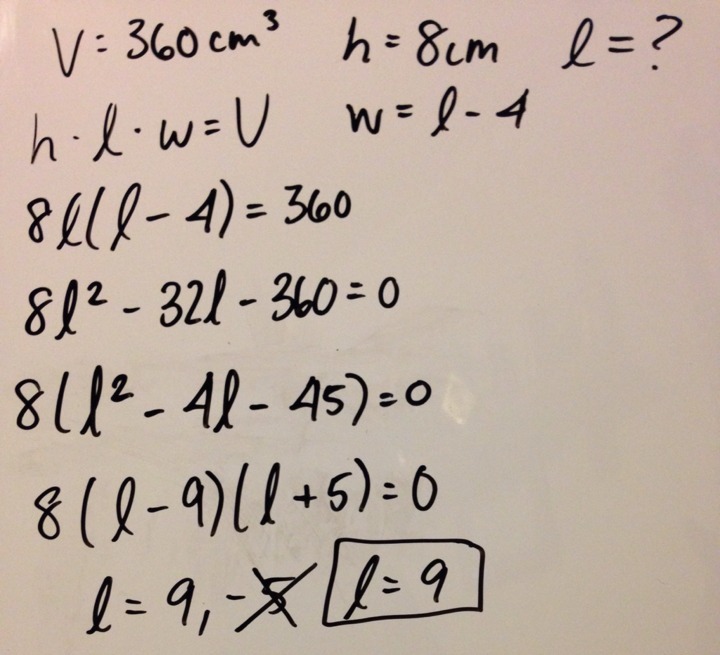 V = 360 cm³ h = 8cm l = ?
h · l · w = V w = l - 4
8l(l - 4) = 360
8l² - 32l - 360 = 0
8(l² - 4l - 45) = 0
8(l - 9)(l + 5) = 0
l = 9, -5 l = 9